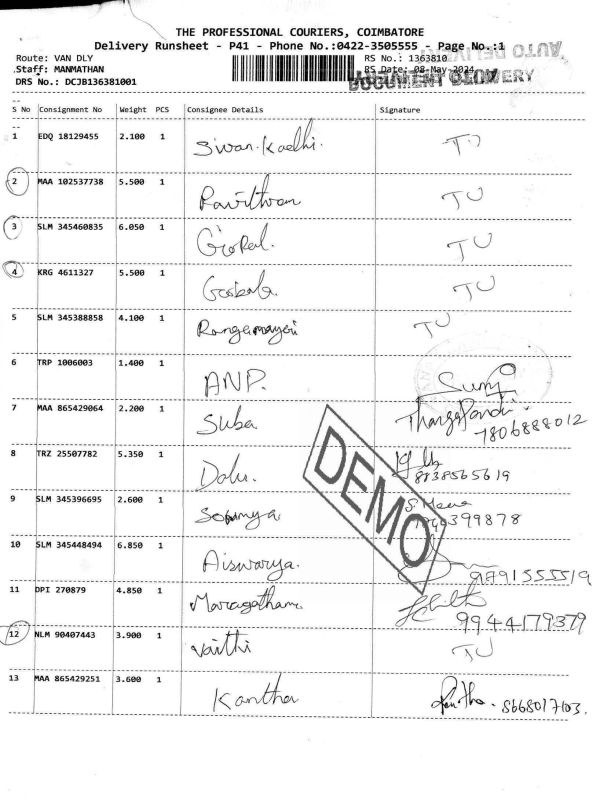 THE PROFESSIONAL COURIERS, COIMBATORE
Delivery Runsheet - P41 - Phone No.:0422-3505555 - Page No.:1
Route: VAN DLY RS No.: 1363810 AUTO DELIVERY
Staff: MANMATHAN RS Date: 08-May-2024
DRS No.: DCJB136381001 DOCUMENT DELIVERY
S No Consignment No Weight PCS Consignee Details Signature
1 EDQ 18129455 2.100 1 TU
2 MAA 102537738 5.500 1 TU
3 SLM 345460835 6.050 1 Gokul. TU
4 KRG 4611327 5.500 1 TU
5 SLM 345388858 4.100 1 TU
6 TRP 1006003 1.400 1 ANP.
7 MAA 865429064 2.200 1 Suba ThangaPandi
7806888012
8 TRZ 25507782 5.350 1
8838565619
9 SLM 345396695 2.600 1 Sowmya
10 SLM 345448494 6.850 1 Aiswarya.
9791555519
11 DPI 270879 4.850 1 Maragatham
9944179379
12 NLM 90407443 3.900 1 Vaithi TU
13 MAA 865429251 3.600 1 Kantha Kantha. 8668017103.
DEMO